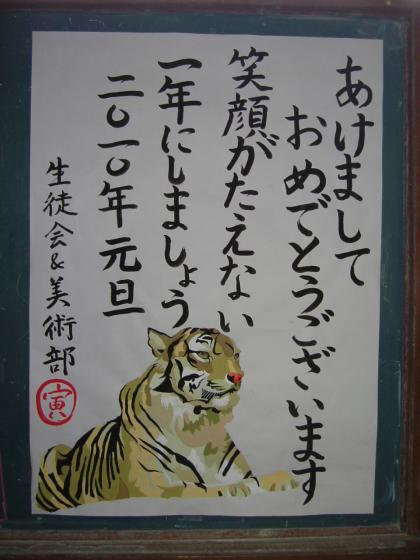 あけまして
おめでとうございます
笑顔がたえない
一年にしましょう
二〇一〇年元旦
生徒会&美術部
寅